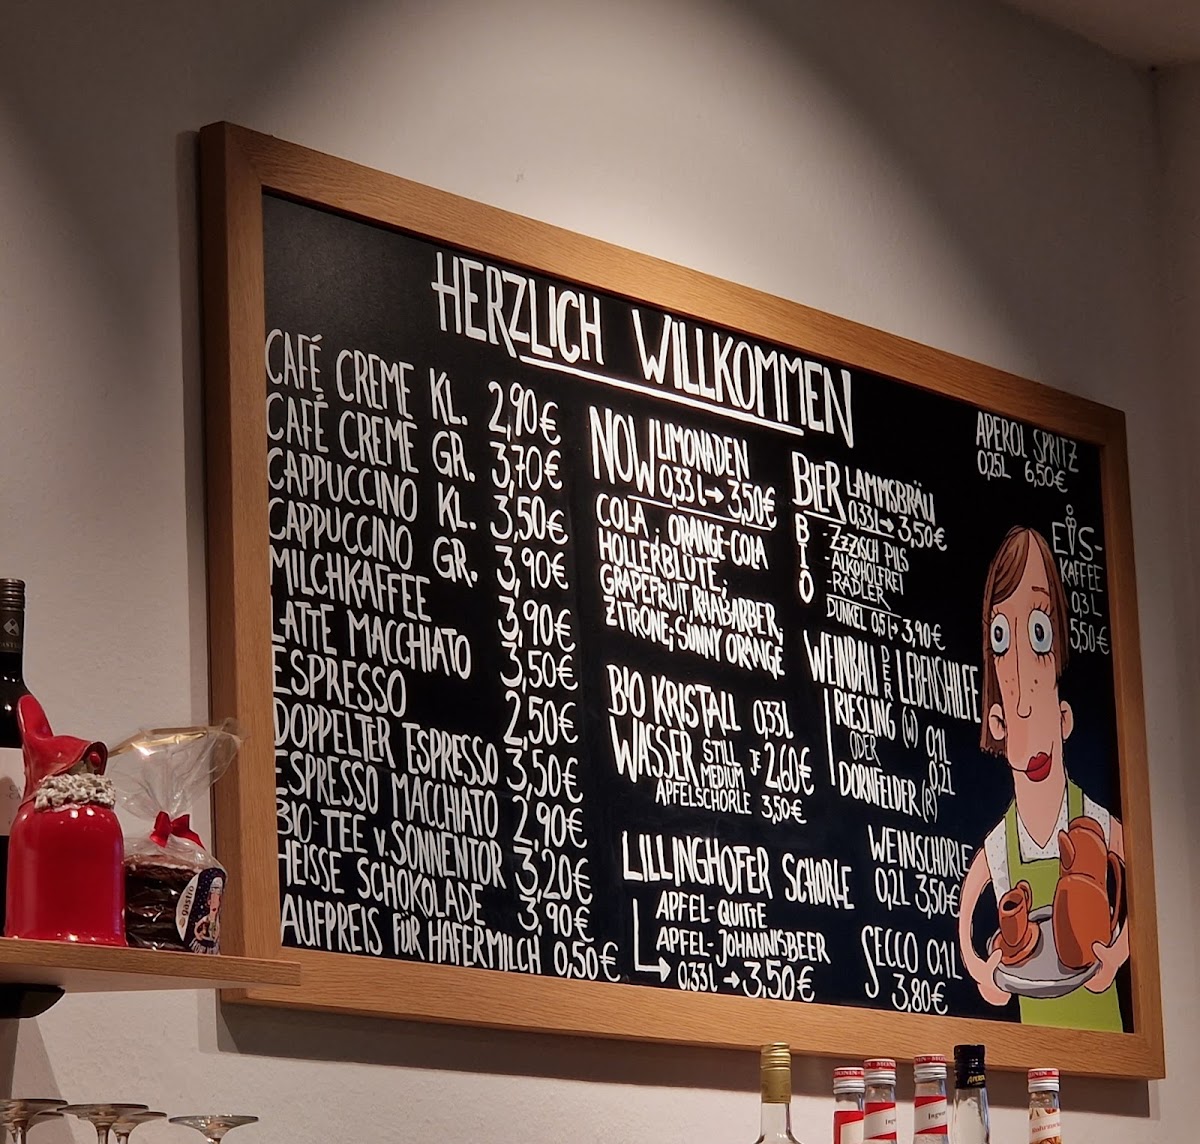 HERZLICH WILLKOMMEN
CAFÉ CREME KL. 2,90€
CAFÉ CREME GR. 3,70€
CAPPUCCINO KL. 3,50€
CAPPUCCINO GR. 3,90€
MILCHKAFFEE 3,90€
LATTE MACCHIATO 3,50€
ESPRESSO 2,50€
DOPPELTER ESPRESSO 3,50€
ESPRESSO MACCHIATO 2,90€
BIO-TEE v. SONNENTOR 3,20€
HEISSE SCHOKOLADE 3,90€
AUFPREIS FÜR HAFERMILCH 0,50€
NOW LIMONADEN
0,33 l → 3,50€
COLA , ORANGE-COLA
HOLLERBLÜTE ,
GRAPEFRUIT, RHABARBER,
ZITRONE, SUNNY ORANGE
BIO KRISTALL 0,33l
WASSER STILL JE 2,60€
MEDIUM
APFELSCHORLE 3,50€
LILLINGHOFER SCHORLE
APFEL-QUITTE
APFEL-JOHANNISBEER
0,33l → 3,50€
BIER LAMMSBRÄU
0,33l → 3,50€
BIO
- ZZZISCH PILS
- ALKOHOLFREI
- RADLER
DUNKEL 0,5l → 3,90€
WEINBAU DER LEBENSHILFE
RIESLING (W) 0,1L
ODER 0,2L
DORNFELDER (R)
WEINSCHORLE
0,2L 3,50€
SECCO 0,1L
3,80€
APEROL SPRITZ
0,25L 6,50€
EIS-
KAFFEE
0,3 L
5,50€
gastro
MONIN
MONIN
MONIN
MONIN